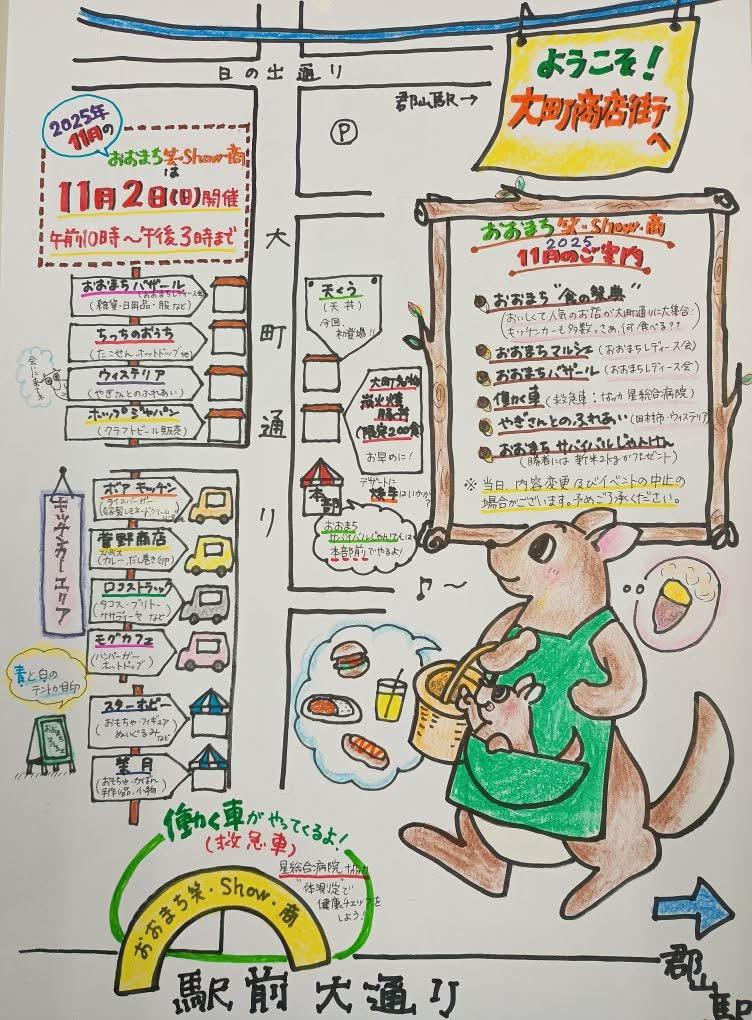 日の出通り
郡山駅→
Ⓟ
ようこそ！
大町商店街
へ
2025年
11月の
おおまち笑・Show・商
は
11月2日(日)開催
午前10時～午後3時まで
大町通り
おおまちバザール
(おおまちレディース会)
(雑貨・日用品・服など)
ちっちのおうち
(たこせん・ホットドッグ他)
会いに来てネ
ウィステリア
(やぎさんとのふれあい)
ホップジャパン
(クラフトビール販売)
天くう
(天丼)
今回、
初登場！！
大町名物
炭火焼
豚丼
(限定200食)
お早めに！
デザートに
焼芋はいかが？
本部
おおまち
サバイバルじゃんけんは
本部前でやるよ！
キッチンカーエリア
ボアキッチン
ライスバーガー
菅野商店
カレー、だし巻き卵
ロコストラック
(タコス・ブリトー
ケサディーヤなど)
モグカフェ
(ハンバーガー
ホットドッグ)
青と白の
テントが目印
おおまち
マルシェ
スターむビー
(おもちゃ・フィギュア
ぬいぐるみなど)
望月
(おもちゃ・かばん
手作り品・小物)
おおまち笑・Show・商
2025
11月のご案内
おおまち“食の祭典”
(おいしくて人気のお店が大町通りに大集合！
キッチンカーも多数。さぁ、何食べる？？
おおまちマルシェ(おおまちレディース会)
おおまちバザール(おおまちレディース会)
働く車(救急車：星総合病院)
やぎさんとのふれあい(田村市・ウィステリア)
おおまちサバイバルじゃんけん
(勝者には新米2kgがプレゼント)
※当日、内容変更及びイベントの中止の
場合がございます。予めご了承ください。
♪～
働く車がやってくるよ！
(救急車)
星総合病院
“体験限定”で
健康チェックを
しよう！
おおまち笑・Show・商
駅前大通り
郡山駅